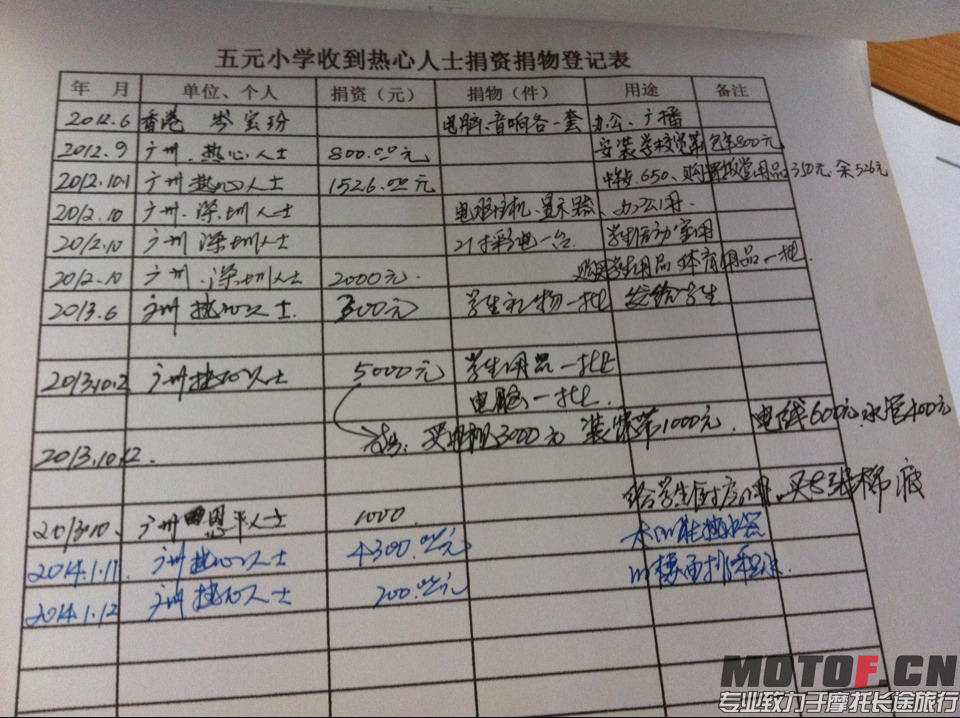 五元小学收到热心人士捐资捐物登记表
年 月 单位、个人 捐资（元） 捐物（件） 用途 备注
2012.6 香港 岑宝玢 电脑、音响各一套 办公、广播
2012.9 广州.热心人士 800.00元 安装学校 800元
2012.10.1 广州热心人士 1526.00元 650、购 用品350元.余526元
2012.10 广州.深圳人士 电脑主机、显示器、办公用.
2012.10 广州 深圳人士 21寸彩电一台 学生活动室用
2012.10 广州.深圳人士 2000元. 购买学生用品 体育用品一批.
2013.6 广州热心人士. 300元 学生礼物一批 发给学生
2013.10.2 广州热心人士 5000元 学生用品一批
电脑一批.
2013.10.12. 买 3000元 装 1000元. 电线600元.水管400元
给学生 用.买
2013.10. 广州 恩平人士 1000.
2014.1.11 广州热心人士 4300.00元 太阳能热水器
2014.1.12 广州热心人士 200.00元
MOTOF.CN
专业致力于摩托长途旅行